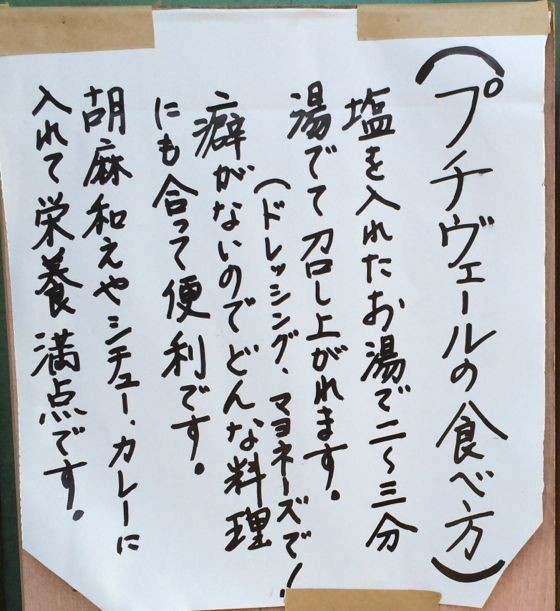 (プチヴェールの食べ方)
塩を入れたお湯で二〜三分
湯でて召し上がれます。
(ドレッシング、マヨネーズで!
癖がないのでどんな料理
にも合って便利です。
胡麻和えやシチュー、カレーに
入れて栄養満点です。